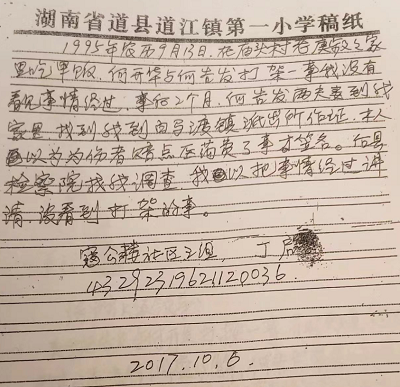 湖南省道县道江镇第一小学稿纸
1995年农历9月13日,在庙头村何庚敬之家
里吃早饭,何开华与何告发打架一事我没有
看见事情经过,事后2个月,何告发两夫妻到我
家里,找到我到白马渡镇派出所作证,本人
以为为伤者赔点医药费了事才签名。后县
检察院找我调查,我以把事情经过讲
清,没看到打架的事。
寇公楼社区3组, 丁后
43292319621120036
2017.10.6.